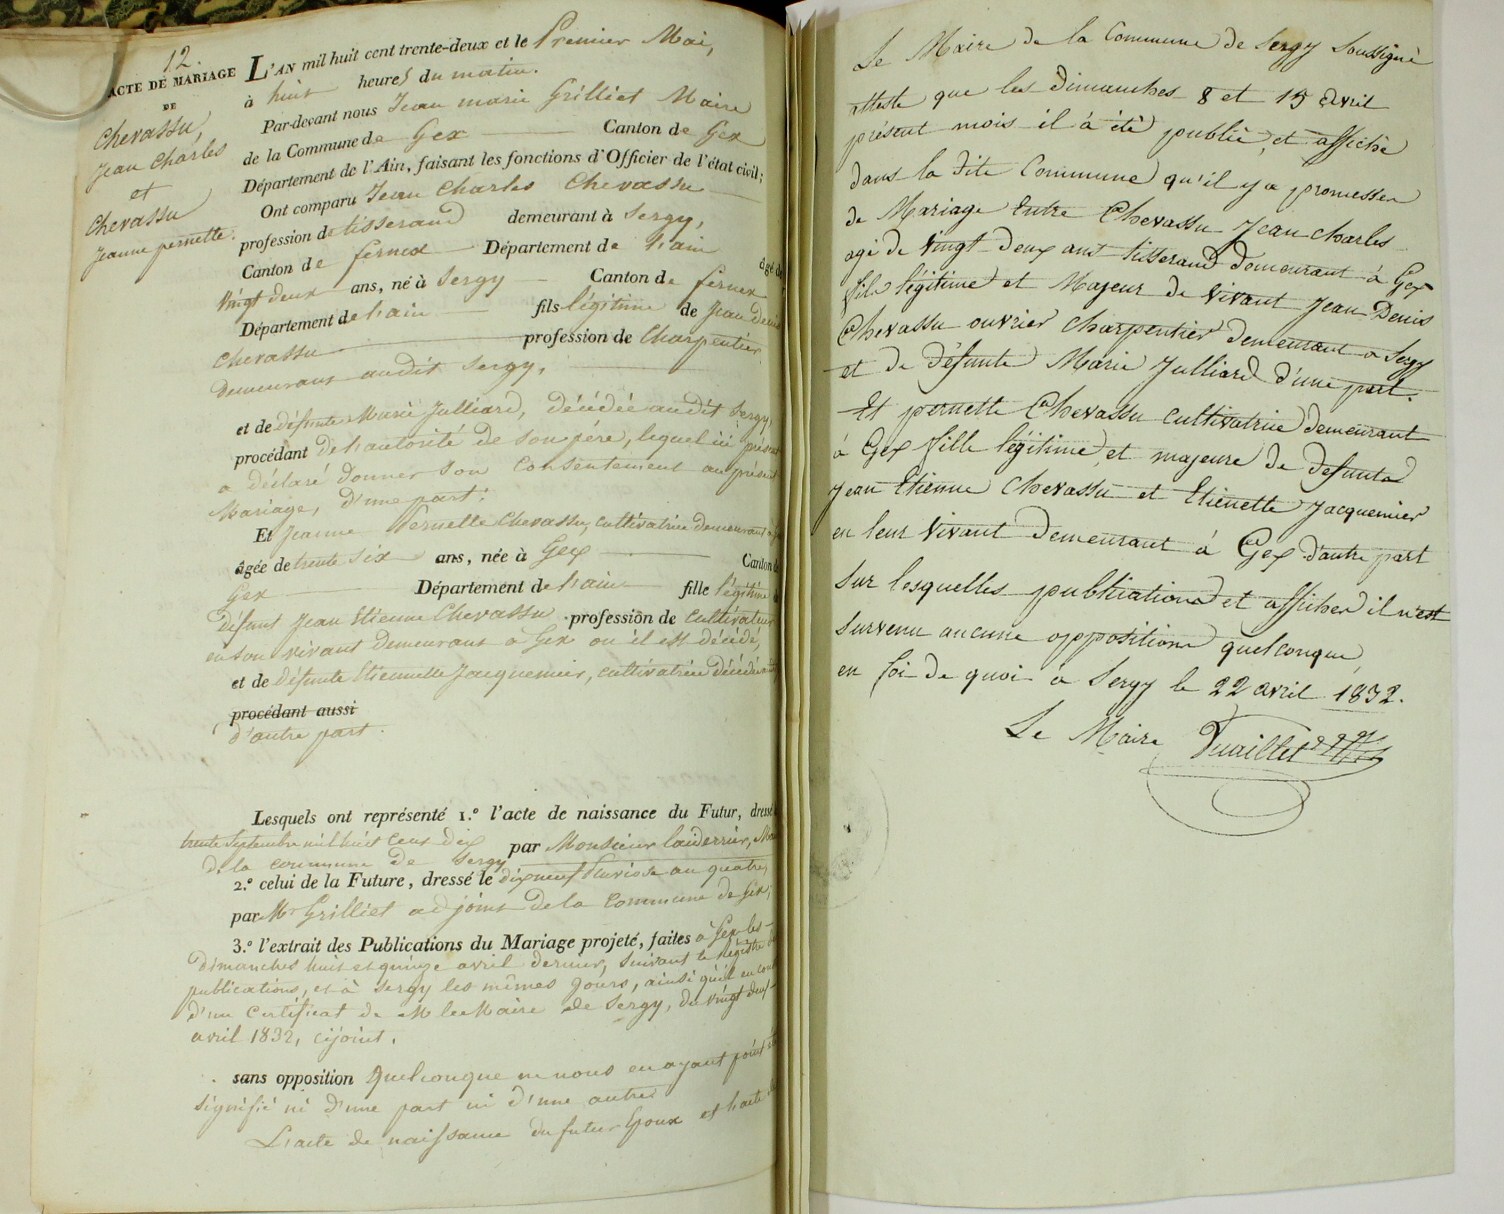 12.
ACTE DE MARIAGE
DE
Chevassu,
Jean Charles
et
Chevassu
Jeanne pernette.
L'AN mil huit cent trente-deux et le Premier Mai,
à huit heures du matin.
Par-devant nous Jean marie Grilliet Maire
de la Commune de Gex Canton de Gex
Département de l'Ain, faisant les fonctions d'Officier de l'état civil;
Ont comparu Jean Charles Chevassu
profession de tisserand demeurant à Sergy,
Canton de fernex Département de l'ain âgé de
vingt deux ans, né à Sergy Canton de fernex
Département de l'ain fils légitime de Jean Denis
Chevassu profession de Charpentier,
demeurant audit Sergy,
et de défunte Marie Julliard, décédée audit Sergy,
procédant de l'autorité de son père, lequel ici présent
a déclaré donner son consentement au présent
Mariage, d'une part:
Et Jeanne Pernette Chevassu, cultivatrice demeurant à
âgée de trente six ans, née à Gex Canton de
Gex Département de l'ain fille légitime
défunt Jean Etienne Chevassu profession de Cultivateur
en son vivant demeurant à Gex ou il est décédé,
et de défunte Etiennette Jacquemier, cultivatrice décédée
procédant aussi
d'autre part.
Lesquels ont représenté 1.° l'acte de naissance du Futur, dressé
trente Septembre mil huit cent dix par Monsieur
de la commune de Sergy
2.° celui de la Future, dressé le dix neuf Pluviose an quatre,
par Mr Grilliet adjoint de la Commune de Gex;
3.° l'extrait des Publications du Mariage projeté, faites à Gex les
dimanches huit et quinze avril dernier, suivant le Régistre
publications, et à Sergy les mêmes jours, ainsi qu'il en
d'un Certificat de M le Maire de Sergy, du vingt deux
avril 1832, cijoint.
sans opposition Quelconque ne nous en ayant point
signifié ni d'une part ni d'une autre
L'acte de naissance du futur Epoux et l'acte
Le Maire de la Commune de Sergy Soussigné
atteste que les Dimanches 8 et 15 Avril
présent mois il à été publié, et affiché
dans la dite Commune qu'il y a promesse
de Mariage Entre Chevassu Jean Charles
agé de Vingt Deux ans tisserand Demeurant à Gex
fils légitime et Majeur de Vivant Jean Denis
Chevassu ouvrier Charpentier demeurant a Sergy
et de Défunte Marie Julliard d'une part.
Et pernette Chevassu Cultivatrice demeurant
à Gex fille légitime, et majeure de defunts
Jean Etienne Chevassu et Etienette Jacquemier
en leur Vivant Demeurant à Gex d'autre part
Sur lesquelles publications et affiches il n'est
survenu aucune oppposition quelconque,
en foi de quoi à Sergy le 22 avril 1832.
Le Maire